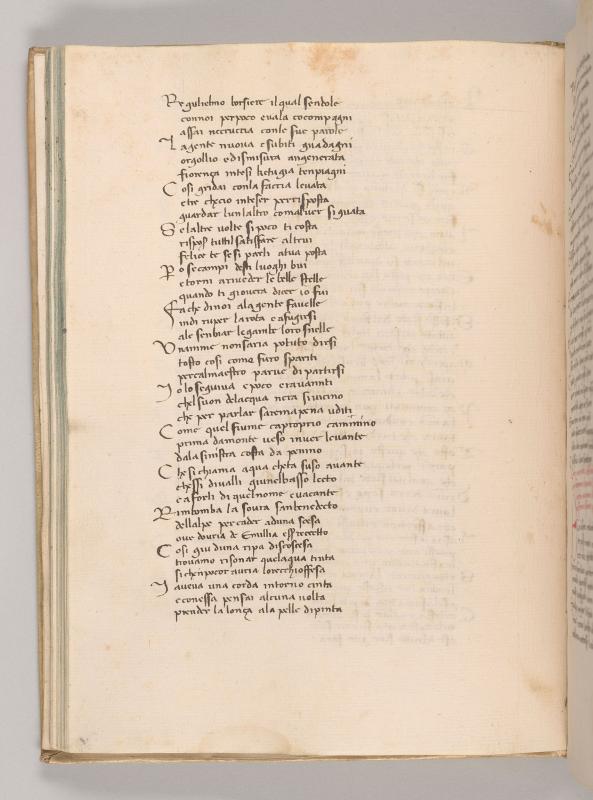 Re gulielmo borsiere il qual sendole
connoi perpoco e uala cocompagni
assai necruccia conle sue parole
La gente nuoua e subiti guadagni
orgollio e dismisura angenerata
fiorença intesi
Cosi gridai conla faccia leuata
e tre checio inteser perrisposta
guardar lun laltro comaluer si guata
Se laltre uolte si poco ti costa
tuttil satisfare altrui
felice te se si parli atua posta
Po se campi desti luoghi bui
e torni ariueder le belle stelle
quando ti giouera dicer io fui
Fa che dinoi ala gente fauelle
indi ruper larota e afugirsi
ale senbiar legambe loro snelle
Vnamme nonsaria potuto dirsi
tosto cosi come furo spariti
percalmaestro parue di partirsi
Io lo seguiua e poco erauamnti
chel suon delacqua nera si uicino
che per parlar saremapena uditi
Come quel fiume ca proprio cammino
prima damonte ueso inuer leuante
dala sinistra costa da penino
Che si chiama aqua cheta suso auante
chessi diualli giu nelbasso lecto
e aforli di quel nome e uacante
Rimbomba la soura sanbenedecto
dellalpe per cader aduna scesa
oue douria de
Cosi giu duna ripa discoscesa
trouamo risonar quelaqua tinta
si chenpocor auria lorecchioffesa
I aueua una corda intorno cinta
e conessa pensai alcuna uolta
prender la lonça ala pelle dipinta